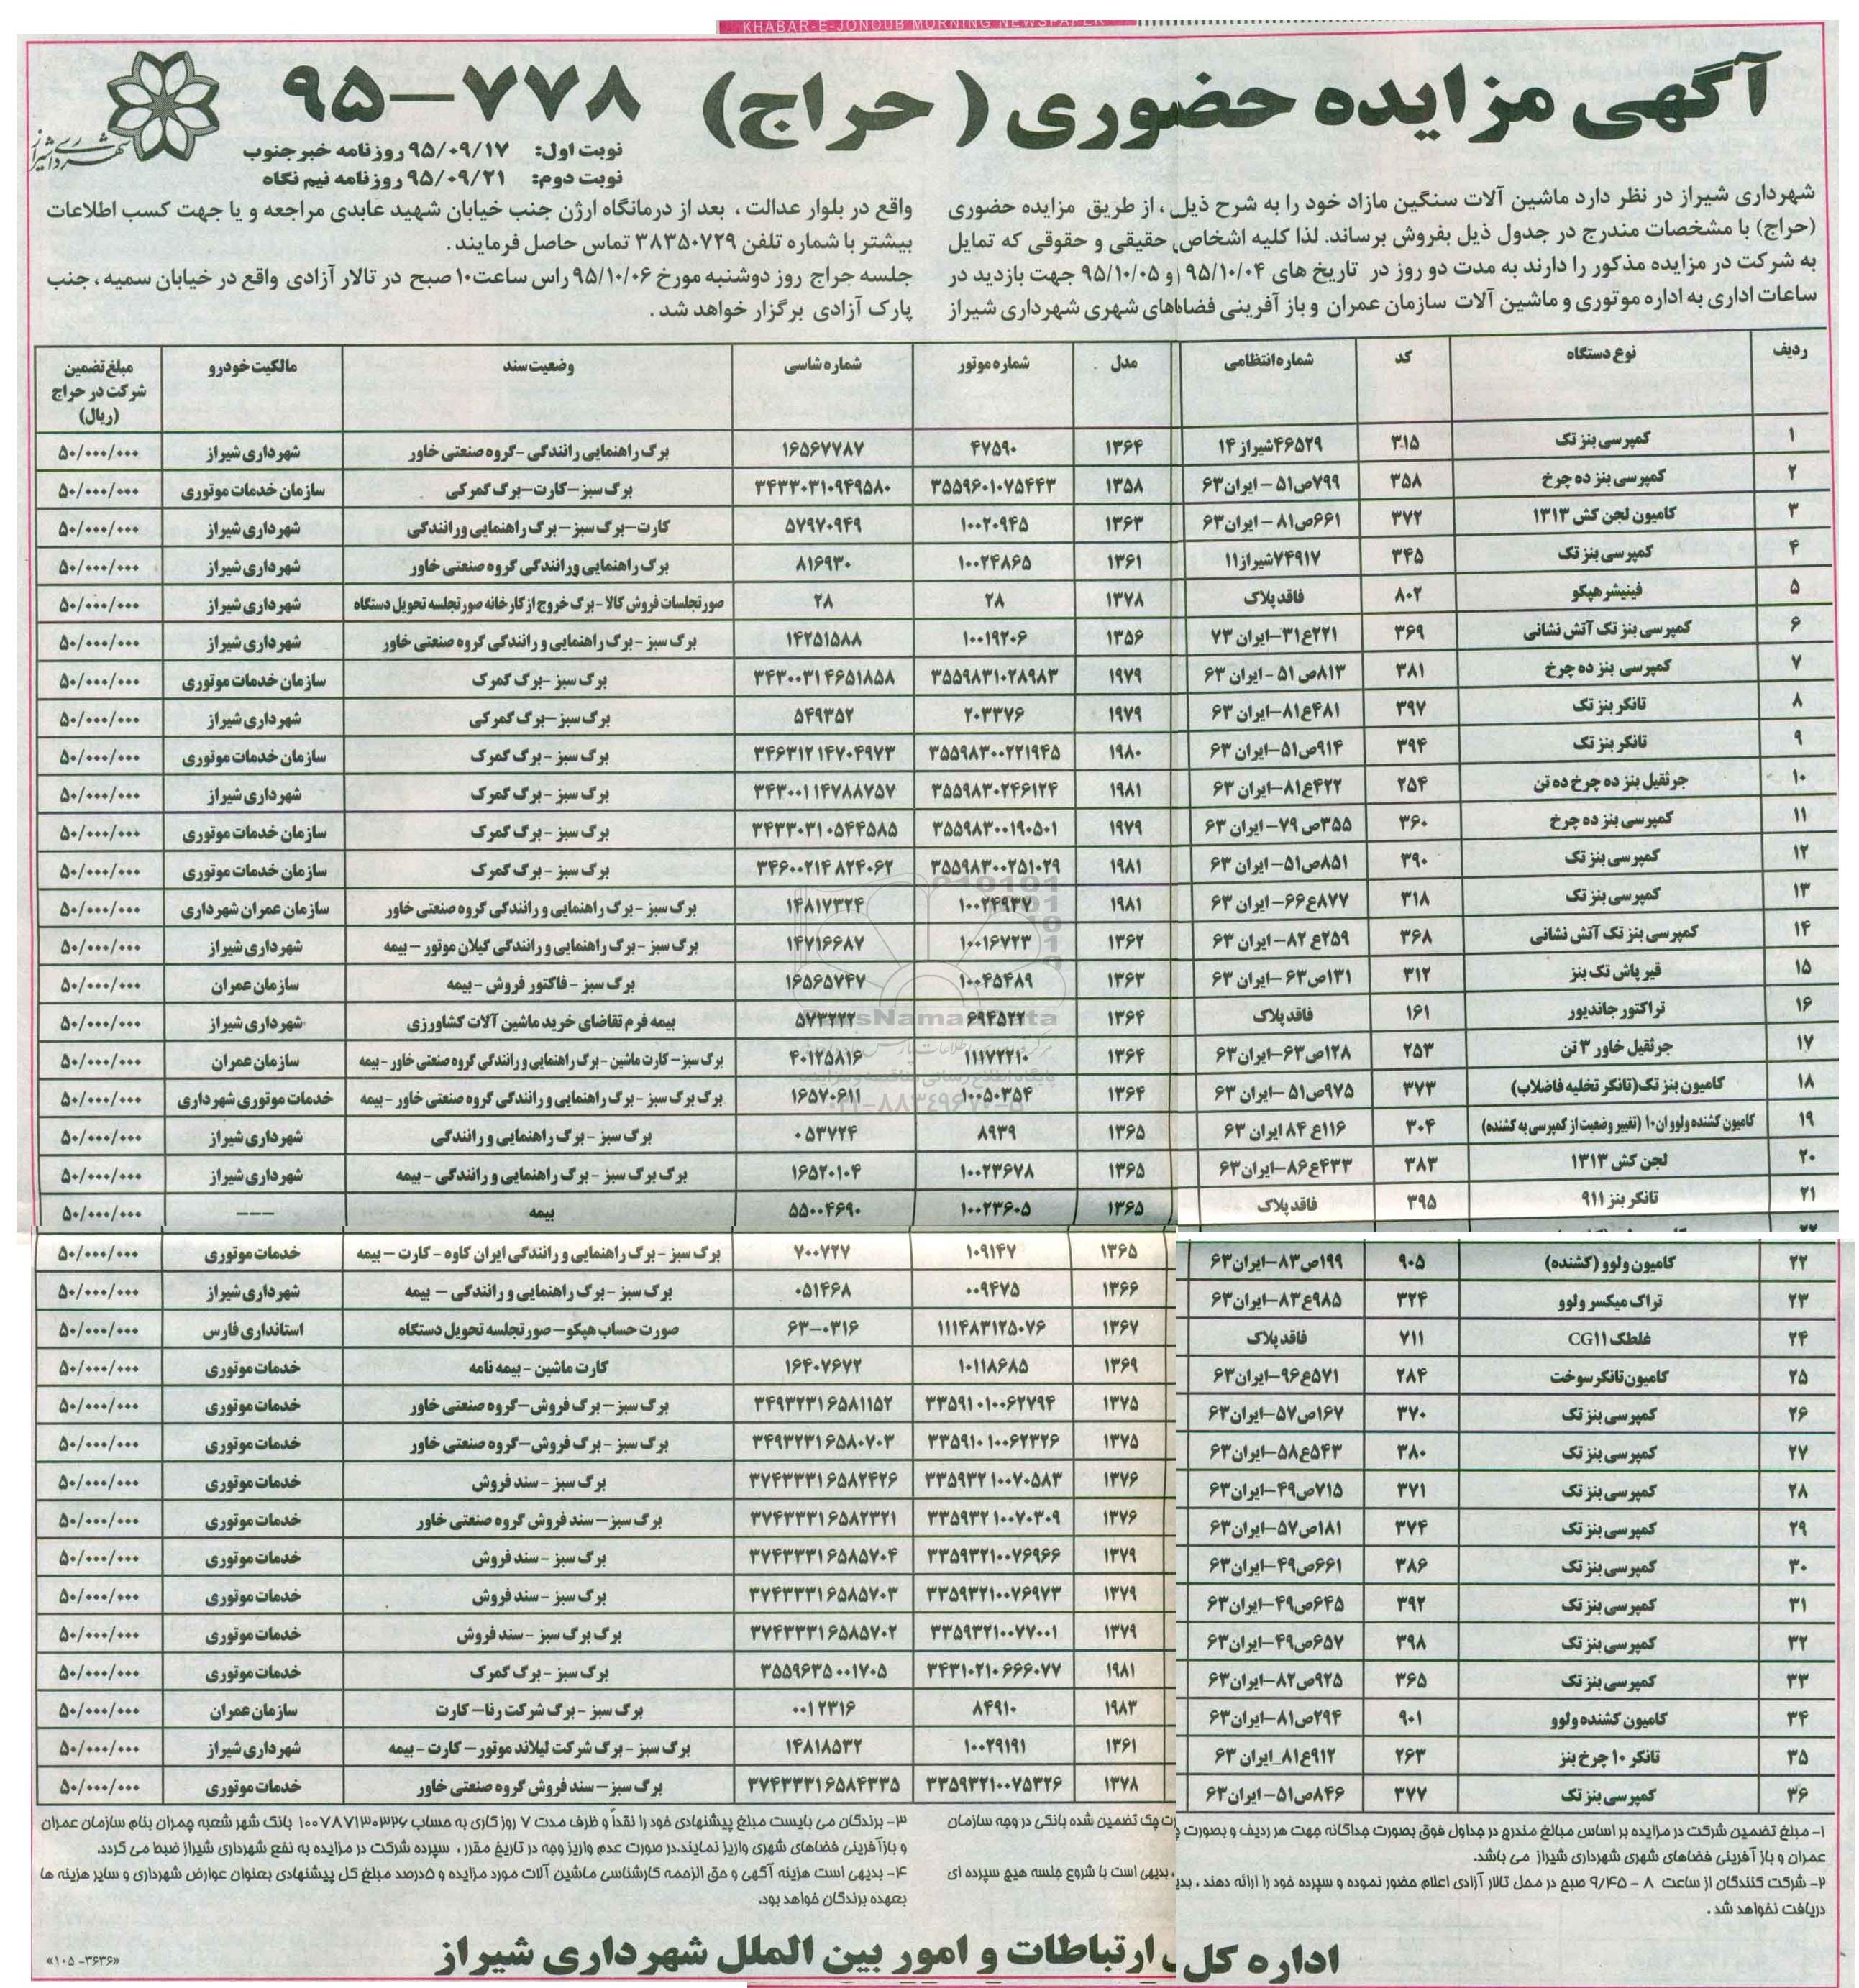 KHABAR-E-JONOUB MORNING NEWSPAPER
آگهی مزایده حضوری ( حراج) ۷۷۸-۹۵
شهرداری شیراز
نوبت اول: ۹۵/۰۹/۱۷ روزنامه خبر جنوب
نوبت دوم: ۹۵/۰۹/۲۱ روزنامه نیم نگاه
شهرداری شیراز در نظر دارد ماشین آلات سنگین مازاد خود را به شرح ذیل ، از طریق مزایده حضوری
(حراج) با مشخصات مندرج در جدول ذیل بفروش برساند. لذا کلیه اشخاص حقیقی و حقوقی که تمایل
به شرکت در مزایده مذکور را دارند به مدت دو روز در تاریخ های ۹۵/۱۰/۰۴ و ۹۵/۱۰/۰۵ جهت بازدید در
ساعات اداری به اداره موتوری و ماشین آلات سازمان عمران و باز آفرینی فضاهای شهری شهرداری شیراز
واقع در بلوار عدالت ، بعد از درمانگاه ارژن جنب خیابان شهید عابدی مراجعه و یا جهت کسب اطلاعات
بیشتر با شماره تلفن ۳۸۳۵۰۷۲۹ تماس حاصل فرمایند.
جلسه حراج روز دوشنبه مورخ ۹۵/۱۰/۰۶ راس ساعت ۱۰ صبح در تالار آزادی واقع در خیابان سمیه ، جنب
پارک آزادی برگزار خواهد شد .
ردیف نوع دستگاه کد شماره انتظامی مدل شماره موتور شماره شاسی وضعیت سند مالکیت خودرو مبلغ تضمین شرکت در حراج (ریال)
۱ کمپرسی بنز تک ۳۱۵ ۴۶۵۲۹شیراز ۱۴ ۱۳۶۴ ۴۷۵۹۰ ۱۶۵۶۷۷۸۷ برگ راهنمایی رانندگی -گروه صنعتی خاور شهرداری شیراز ۵۰/۰۰۰/۰۰۰
۲ کمپرسی بنز ده چرخ ۳۵۸ ۷۹۹ص۵۱-ایران۶۳ ۱۳۵۸ ۳۵۵۹۶۰۱۰۷۵۴۴۳ ۳۴۳۳۰۳۱۰۹۴۹۵۸۰ برگ سبز-کارت-برگ گمرکی سازمان خدمات موتوری ۵۰/۰۰۰/۰۰۰
۳ کامیون لجن کش ۱۳۱۳ ۳۷۲ ۶۶۱ص۸۱-ایران۶۳ ۱۳۶۳ ۱۰۰۲۰۹۴۵ ۵۷۹۷۰۹۴۹ کارت-برگ سبز-برگ راهنمایی ورانندگی شهرداری شیراز ۵۰/۰۰۰/۰۰۰
۴ کمپرسی بنز تک ۳۴۵ ۷۴۹۱۷شیراز۱۱ ۱۳۶۱ ۱۰۰۲۴۸۶۵ ۸۱۶۹۳۰ برگ راهنمایی ورانندگی گروه صنعتی خاور شهرداری شیراز ۵۰/۰۰۰/۰۰۰
۵ فینیشر هپکو ۸۰۲ فاقد پلاک ۱۳۷۸ ۲۸ ۲۸ صورتجلسات فروش کالا -برگ خروج از کارخانه صورتجلسه تحویل دستگاه شهرداری شیراز ۵۰/۰۰۰/۰۰۰
۶ کمپرسی بنز تک آتش نشانی ۳۶۹ ۲۲۱ع۳۱-ایران ۷۳ ۱۳۵۶ ۱۰۰۱۹۲۰۶ ۱۴۲۵۱۵۸۸ برگ سبز -برگ راهنمایی و رانندگی گروه صنعتی خاور شهرداری شیراز ۵۰/۰۰۰/۰۰۰
۷ کمپرسی بنز ده چرخ ۳۸۱ ۸۱۳ص ۵۱ - ایران ۶۳ ۱۹۷۹ ۳۵۵۹۸۳۱۰۲۸۹۸۳ ۳۴۳۰۰۳۱۴۶۵۱۸۵۸ برگ سبز -برگ گمرک سازمان خدمات موتوری ۵۰/۰۰۰/۰۰۰
۸ تانکر بنز تک ۳۹۷ ۴۸۱ع۸۱-ایران ۶۳ ۱۹۷۹ ۲۰۳۳۷۶ ۵۴۹۳۵۲ برگ سبز-برگ گمرکی شهرداری شیراز ۵۰/۰۰۰/۰۰۰
۹ تانکر بنز تک ۳۹۴ ۹۱۴ص۵۱-ایران ۶۳ ۱۹۸۰ ۳۵۵۹۸۳۰۰۲۲۱۹۴۵ ۳۴۶۳۱۲۱۴۷۰۴۹۷۳ برگ سبز -برگ گمرک سازمان خدمات موتوری ۵۰/۰۰۰/۰۰۰
۱۰ جرثقیل بنز ده چرخ ده تن ۲۵۴ ۴۲۲ع۸۱-ایران ۶۳ ۱۹۸۱ ۳۵۵۹۸۳۰۲۴۶۱۲۴ ۳۴۳۰۰۱۱۴۷۸۸۷۵۷ برگ سبز -برگ گمرک شهرداری شیراز ۵۰/۰۰۰/۰۰۰
۱۱ کمپرسی بنز ده چرخ ۳۶۰ ۳۵۵ص ۷۹- ایران ۶۳ ۱۹۷۹ ۳۵۵۹۸۳۰۰۱۹۰۵۰۱ ۳۴۳۳۰۳۱۰۵۴۴۵۸۵ برگ سبز -برگ گمرک سازمان خدمات موتوری ۵۰/۰۰۰/۰۰۰
۱۲ کمپرسی بنز تک ۳۹۰ ۸۵۱ص۵۱- ایران ۶۳ ۱۹۸۱ ۳۵۵۹۸۳۰۰۲۵۱۰۲۹ ۳۴۶۰۰۲۱۴۸۲۴۰۶۲ برگ سبز -برگ گمرک سازمان خدمات موتوری ۵۰/۰۰۰/۰۰۰
۱۳ کمپرسی بنز تک ۳۱۸ ۸۷۷ع۶۶- ایران ۶۳ ۱۹۸۱ ۱۰۰۲۴۹۳۷ ۱۴۸۱۷۳۲۴ برگ سبز -برگ راهنمایی و رانندگی گروه صنعتی خاور سازمان عمران شهرداری ۵۰/۰۰۰/۰۰۰
۱۴ کمپرسی بنز تک آتش نشانی ۳۶۸ ۲۵۹ع ۸۲- ایران ۶۳ ۱۳۶۲ ۱۰۰۱۶۷۲۳ ۱۴۷۱۶۶۸۷ برگ سبز -برگ راهنمایی و رانندگی گیلان موتور -بیمه شهرداری شیراز ۵۰/۰۰۰/۰۰۰
۱۵ قیر پاش تک بنز ۳۱۲ ۱۳۱ص۶۳-ایران ۶۳ ۱۳۶۳ ۱۰۰۴۵۴۸۹ ۱۶۵۶۵۷۴۷ برگ سبز -فاکتور فروش -بیمه سازمان عمران ۵۰/۰۰۰/۰۰۰
۱۶ تراکتور جاندیور ۱۶۱ فاقد پلاک ۱۳۶۴ ۶۹۴۵۲۲ ۵۷۳۲۲۲ بیمه فرم تقاضای خرید ماشین آلات کشاورزی شهرداری شیراز ۵۰/۰۰۰/۰۰۰
۱۷ جرثقیل خاور ۳ تن ۲۵۳ ۱۲۸ص۶۳-ایران۶۳ ۱۳۶۴ ۱۱۱۷۲۲۱۰ ۴۰۱۲۵۸۱۶ برگ سبز-کارت ماشین -برگ راهنمایی و رانندگی گروه صنعتی خاور -بیمه سازمان عمران ۵۰/۰۰۰/۰۰۰
۱۸ کامیون بنز تک(تانکر تخلیه فاضلاب) ۳۷۳ ۹۷۵ص۵۱ -ایران ۶۳ ۱۳۶۴ ۱۰۰۵۰۳۵۴ ۱۶۵۷۰۶۱۱ برگ برگ سبز -برگ راهنمایی و رانندگی گروه صنعتی خاور -بیمه خدمات موتوری شهرداری ۵۰/۰۰۰/۰۰۰
۱۹ کامیون کشنده ولوو ان۱۰ (تغییر وضعیت از کمپرسی به کشنده) ۳۰۴ ۱۱۶ع ۸۴ ایران ۶۳ ۱۳۶۵ ۸۹۳۹ ۰۵۳۷۲۴ برگ سبز -برگ راهنمایی و رانندگی شهرداری شیراز ۵۰/۰۰۰/۰۰۰
۲۰ لجن کش ۱۳۱۳ ۳۸۳ ۴۳۳ع۸۶-ایران۶۳ ۱۳۶۵ ۱۰۰۲۳۶۷۸ ۱۶۵۲۰۱۰۴ برگ برگ سبز -برگ راهنمایی و رانندگی -بیمه شهرداری شیراز ۵۰/۰۰۰/۰۰۰
۲۱ تانکر بنز ۹۱۱ ۳۹۵ فاقد پلاک ۱۳۶۵ ۱۰۰۲۳۶۰۵ ۵۵۰۰۴۶۹۰ بیمه --- ۵۰/۰۰۰/۰۰۰
۲۲ کامیون ولوو (کشنده) ۹۰۵ ۱۹۹ص۸۳-ایران۶۳ ۱۳۶۵ ۱۰۹۱۴۷ ۷۰۰۷۲۷ برگ سبز -برگ راهنمایی و رانندگی ایران کاوه -کارت -بیمه خدمات موتوری ۵۰/۰۰۰/۰۰۰
۲۳ تراک میکسر ولوو ۳۲۴ ۹۸۵ع۸۳-ایران۶۳ ۱۳۶۶ ۰۰۹۴۷۵ ۰۵۱۴۶۸ برگ سبز -برگ راهنمایی و رانندگی - بیمه شهرداری شیراز ۵۰/۰۰۰/۰۰۰
۲۴ غلطک CG11 ۷۱۱ فاقد پلاک ۱۳۶۷ ۱۱۱۴۸۳۱۲۵۰۷۶ ۶۳-۰۳۱۶ صورت حساب هپکو-صورتجلسه تحویل دستگاه استانداری فارس ۵۰/۰۰۰/۰۰۰
۲۵ کامیون تانکر سوخت ۲۸۴ ۵۷۱ع۹۶-ایران۶۳ ۱۳۶۹ ۱۰۱۱۸۶۸۵ ۱۶۴۰۷۶۷۲ کارت ماشین -بیمه نامه خدمات موتوری ۵۰/۰۰۰/۰۰۰
۲۶ کمپرسی بنز تک ۳۷۰ ۱۶۷ص۵۷-ایران۶۳ ۱۳۷۵ ۳۳۵۹۱۰۱۰۰۶۲۷۹۴ ۳۴۹۳۲۳۱۶۵۸۱۱۵۲ برگ سبز-برگ فروش-گروه صنعتی خاور خدمات موتوری ۵۰/۰۰۰/۰۰۰
۲۷ کمپرسی بنز تک ۳۸۰ ۵۴۳ع۵۸-ایران۶۳ ۱۳۷۵ ۳۳۵۹۱۰۱۰۰۶۲۳۲۶ ۳۴۹۳۲۳۱۶۵۸۰۷۰۳ برگ سبز -برگ فروش-گروه صنعتی خاور خدمات موتوری ۵۰/۰۰۰/۰۰۰
۲۸ کمپرسی بنز تک ۳۷۱ ۷۱۵ص۴۹-ایران۶۳ ۱۳۷۶ ۳۳۵۹۳۲۱۰۰۷۰۵۸۳ ۳۷۴۳۳۳۱۶۵۸۲۴۲۶ برگ سبز -سند فروش خدمات موتوری ۵۰/۰۰۰/۰۰۰
۲۹ کمپرسی بنز تک ۳۷۴ ۱۸۱ص۵۷-ایران۶۳ ۱۳۷۶ ۳۳۵۹۳۲۱۰۰۷۰۳۰۹ ۳۷۴۳۳۳۱۶۵۸۲۳۲۱ برگ سبز-سند فروش گروه صنعتی خاور خدمات موتوری ۵۰/۰۰۰/۰۰۰
۳۰ کمپرسی بنز تک ۳۸۶ ۶۶۱ص۴۹-ایران۶۳ ۱۳۷۹ ۳۳۵۹۳۲۱۰۰۷۶۹۶۶ ۳۷۴۳۳۳۱۶۵۸۵۷۰۴ برگ سبز -سند فروش خدمات موتوری ۵۰/۰۰۰/۰۰۰
۳۱ کمپرسی بنز تک ۳۹۲ ۶۴۵ص۴۹-ایران۶۳ ۱۳۷۹ ۳۳۵۹۳۲۱۰۰۷۶۹۷۳ ۳۷۴۳۳۳۱۶۵۸۵۷۰۳ برگ سبز -سند فروش خدمات موتوری ۵۰/۰۰۰/۰۰۰
۳۲ کمپرسی بنز تک ۳۹۸ ۶۵۷ص۴۹-ایران۶۳ ۱۳۷۹ ۳۳۵۹۳۲۱۰۰۷۷۰۰۱ ۳۷۴۳۳۳۱۶۵۸۵۷۰۲ برگ برگ سبز -سند فروش خدمات موتوری ۵۰/۰۰۰/۰۰۰
۳۳ کمپرسی بنز تک ۳۶۵ ۹۲۵ص۸۲-ایران۶۳ ۱۹۸۱ ۳۴۳۱۰۲۱۰۶۶۶۰۷۷ ۳۵۵۹۶۳۵۰۰۱۷۰۵ برگ سبز -برگ گمرک خدمات موتوری ۵۰/۰۰۰/۰۰۰
۳۴ کامیون کشنده ولوو ۹۰۱ ۲۹۴ص۸۱-ایران۶۳ ۱۹۸۳ ۸۴۹۱۰ ۰۰۱۲۳۱۶ برگ سبز -برگ شرکت رنا-کارت سازمان عمران ۵۰/۰۰۰/۰۰۰
۳۵ تانکر ۱۰ چرخ بنز ۲۶۳ ۹۱۲ع۸۱_ایران ۶۳ ۱۳۶۱ ۱۰۰۲۹۱۹۱ ۱۴۸۱۸۵۳۲ برگ سبز -برگ شرکت لیلاند موتور-کارت -بیمه شهرداری شیراز ۵۰/۰۰۰/۰۰۰
۳۶ کمپرسی بنز تک ۳۷۷ ۸۴۶ص۵۱-ایران۶۳ ۱۳۷۸ ۳۳۵۹۳۲۱۰۰۷۵۳۲۶ ۳۷۴۳۳۳۱۶۵۸۴۳۳۵ برگ سبز-سند فروش گروه صنعتی خاور خدمات موتوری ۵۰/۰۰۰/۰۰۰
۱- مبلغ تضمین شرکت در مزایده بر اساس مبالغ مندرج در جداول فوق بصورت جداگانه جهت هر ردیف و بصورت چک تضمین شده بانکی در وجه سازمان
عمران و باز آفرینی فضاهای شهری شهرداری شیراز می باشد.
۲- شرکت کنندگان از ساعت ۸ - ۹/۴۵ صبح در محل تالار آزادی اعلام حضور نموده و سپرده خود را ارائه دهند ، بدیهی است با شروع جلسه هیچ سپرده ای
دریافت نخواهد شد .
۳- برندگان می بایست مبلغ پیشنهادی خود را نقداً و ظرف مدت ۷ روز کاری به حساب ۱۰۰۷۸۷۱۳۰۳۲۶ بانک شهر شعبه چمران بنام سازمان عمران
و بازآفرینی فضاهای شهری واریز نمایند.در صورت عدم واریز وجه در تاریخ مقرر ، سپرده شرکت در مزایده به نفع شهرداری شیراز ضبط می گردد.
۴- بدیهی است هزینه آگهی و حق الزحمه کارشناسی ماشین آلات مورد مزایده و ۵درصد مبلغ کل پیشنهادی بعنوان عوارض شهرداری و سایر هزینه ها
بعهده برندگان خواهد بود.
اداره کل ارتباطات و امور بین الملل شهرداری شیراز
«۱۰۵-۳۶۳۶»